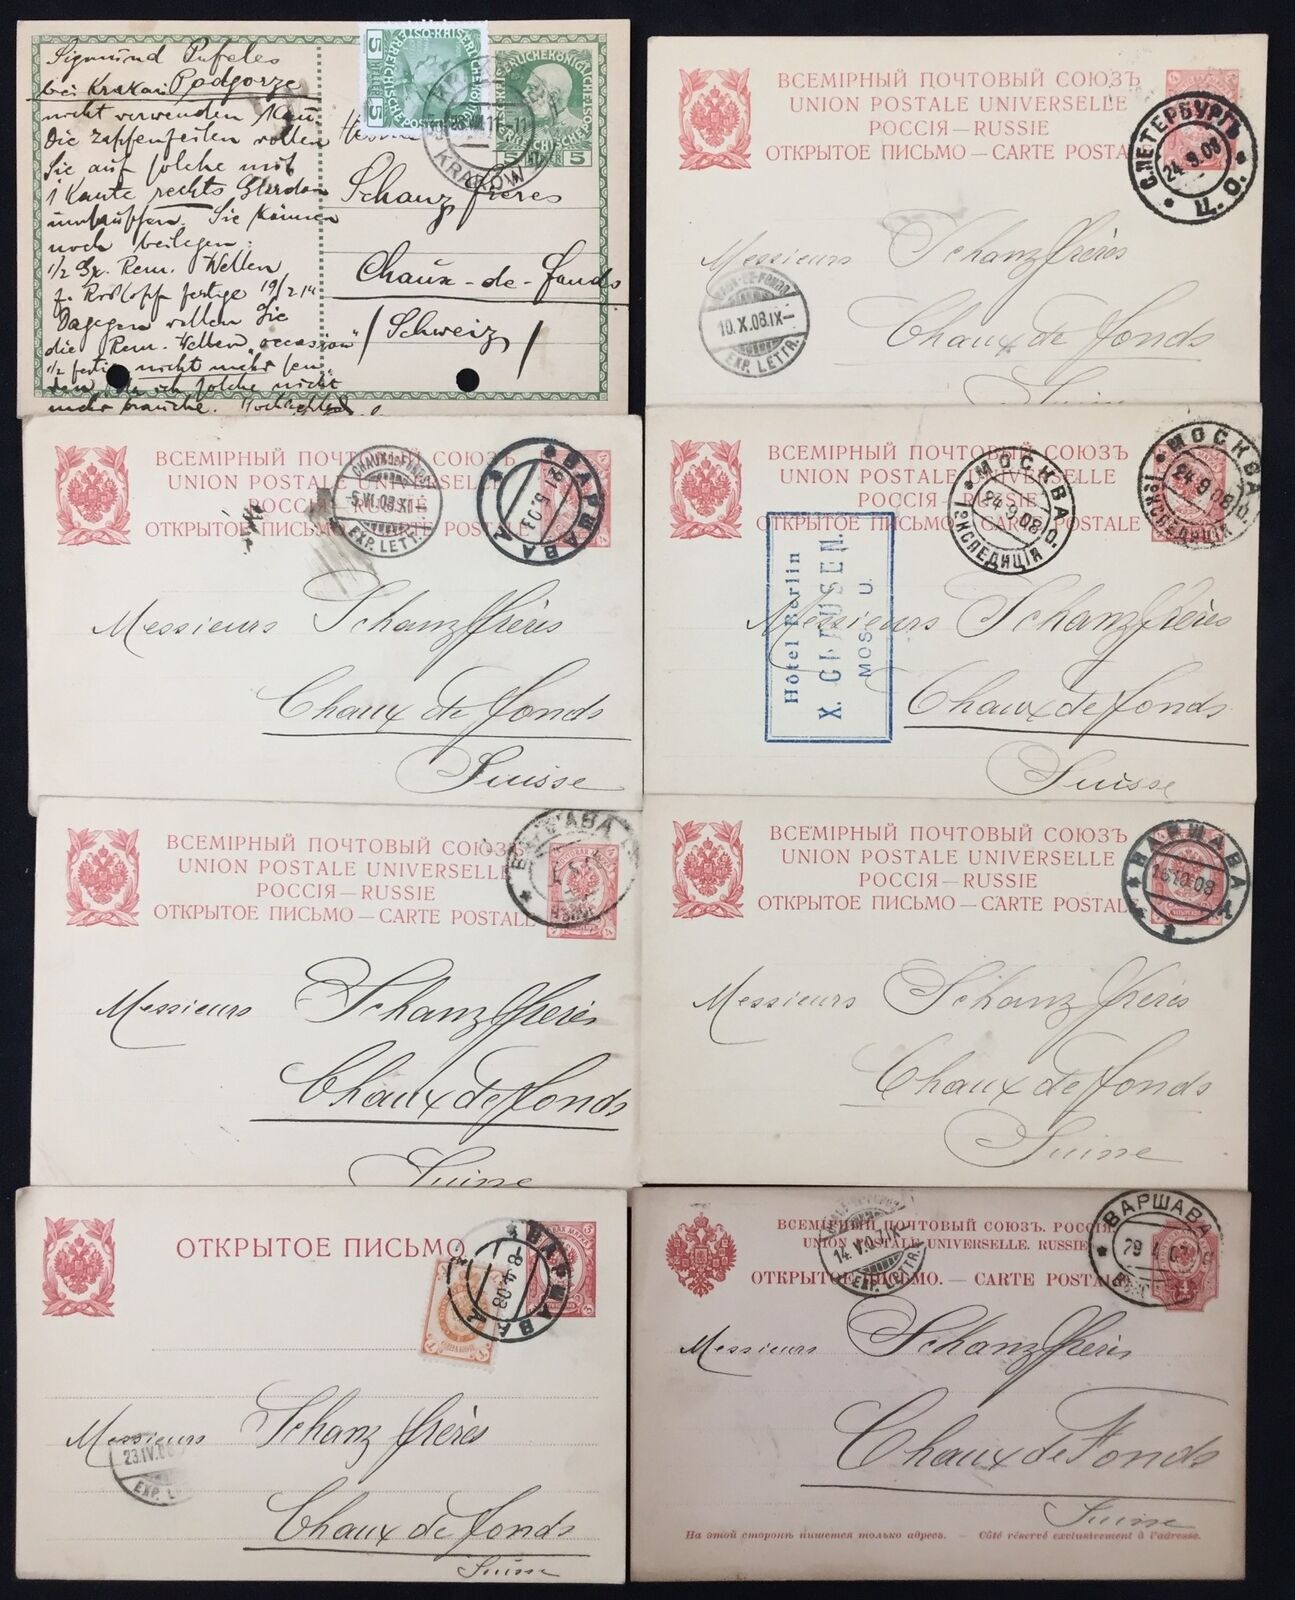 Sigmund Pufeles
bei Krakau Podgorze
nicht verwenden kann.
Die Zapfenfeilen wollen
Sie auf solche mit
1 Kante rechts
umtauschen. Sie können
noch beilegen:
1/2 Gr. Rem. Wellen
f. Roskopf fertige 19/2 14
Dagegen wollen Sie
die Rem. Wellen "occasion"
1/2 fertig nicht mehr sen-
den, da ich solche nicht
mehr brauche.
5 HELLER 5
5 HELLER 5
KRAKÓW
Schanz frères
Chaux-de-Fonds
/Schweiz/
ВСЕМІРНЫЙ ПОЧТОВЫЙ СОЮЗЪ
UNION POSTALE UNIVERSELLE
РОССІЯ — RUSSIE
ОТКРЫТОЕ ПИСЬМО — CARTE POSTALE
С.ПЕТЕРБУРГЪ
24.9.08
Ц. О.
10.X.08.IX—
EXP. LETTR.
Messieurs Schanz frères
Chaux de fonds
Suisse
ВСЕМІРНЫЙ ПОЧТОВЫЙ СОЮЗЪ
UNION POSTALE UNIVERSELLE
РОССІЯ — RUSSIE
ОТКРЫТОЕ ПИСЬМО — CARTE POSTALE
CHAUX-DE-FONDS
5.VI.08.XI—
EXP. LETTR.
ВАРШАВА
Messieurs Schanz frères
Chaux de fonds
Suisse
ВСЕМІРНЫЙ ПОЧТОВЫЙ СОЮЗЪ
UNION POSTALE UNIVERSELLE
РОССІЯ — RUSSIE
ОТКРЫТОЕ ПИСЬМО — CARTE POSTALE
МОСКВА
24.9.08
ЭКСПЕДИЦІЯ
МОСКВА
24.9.08
ЭКСПЕДИЦІЯ
Hôtel Berlin
X. CLAUSEN.
MOSCOU.
Messieurs Schanz frères
Chaux de fonds
Suisse
ВСЕМІРНЫЙ ПОЧТОВЫЙ СОЮЗЪ
UNION POSTALE UNIVERSELLE
РОССІЯ — RUSSIE
ОТКРЫТОЕ ПИСЬМО — CARTE POSTALE
ВАРШАВА
Messieurs Schanz frères
Chaux de fonds
Suisse
ВСЕМІРНЫЙ ПОЧТОВЫЙ СОЮЗЪ
UNION POSTALE UNIVERSELLE
РОССІЯ — RUSSIE
ОТКРЫТОЕ ПИСЬМО — CARTE POSTALE
ВАРШАВА
16.10.08
Messieurs Schanz frères
Chaux de fonds
Suisse
ОТКРЫТОЕ ПИСЬМО.
ВАРШАВА
8.4.08
23.IV.08
EXP. LETTR.
Messieurs Schanz frères
Chaux de fonds
Suisse
ВСЕМІРНЫЙ ПОЧТОВЫЙ СОЮЗЪ. РОССІЯ
UNION POSTALE UNIVERSELLE. RUSSIE
ОТКРЫТОЕ ПИСЬМО. — CARTE POSTALE
EXP. LETTR.
ВАРШАВА
Messieurs Schanz frères
Chaux de Fonds
Suisse
На этой сторонѣ пишется только адресъ. — Côté réservé exclusivement à l'adresse.